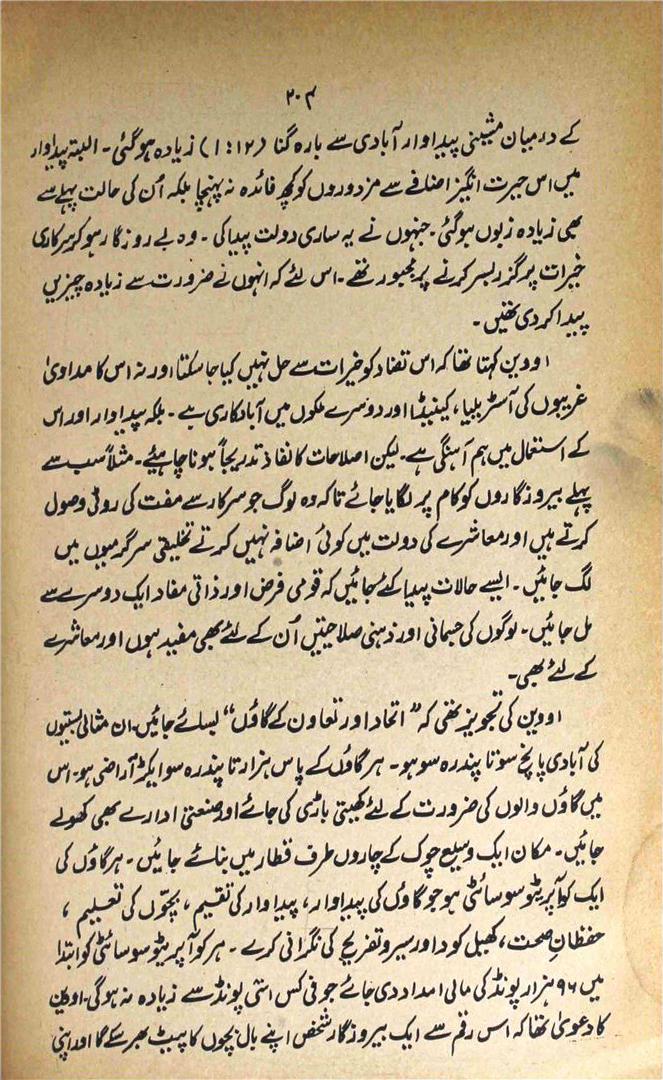 ۲۰۴
کے درمیان مشینی پیداوار آبادی سے بارہ گنا (۱۲ : ۱) زیادہ ہوگئی۔ البتہ پیداوار
میں اس حیرت انگیز اضافے سے مزدوروں کو کچھ فائدہ نہ پہنچا بلکہ اُن کی حالت پہلے سے
بھی زیادہ زبوں ہوگئی۔ جنہوں نے یہ ساری دولت پیدا کی۔ وہ بے روزگار ہو کر سرکاری
خیرات پر گزر بسر کرنے پر مجبور تھے۔ اس لئے کہ انہوں نے ضرورت سے زیادہ چیزیں
پیدا کر دی تھیں۔
اووین کہتا تھا کہ اس تضاد کو خیرات سے حل نہیں کیا جا سکتا اور نہ اس کا مداویٰ
غریبوں کی آسٹریلیا، کینیڈا اور دوسرے ملکوں میں آبادکاری ہے۔ بلکہ پیداوار اور اس
کے استعمال میں ہم آہنگی ہے۔ لیکن اصلاحات کا نفاذ تدریجاً ہونا چاہیئے۔ مثلاً سب سے
پہلے بیروزگاروں کو کام پر لگایا جائے تاکہ وہ لوگ جو سرکار سے مفت کی روٹی وصول
کرتے ہیں اور معاشرے کی دولت میں کوئی اضافہ نہیں کرتے تخلیقی سرگرمیوں میں
لگ جائیں۔ ایسے حالات پیدا کئے جائیں کہ قومی فرض اور ذاتی مفاد ایک دوسرے سے
مل جائیں۔ لوگوں کی جسمانی اور ذہنی صلاحیتیں اُن کے لئے بھی مفید ہوں اور معاشرے
کے لئے بھی۔
اووین کی تجویز تھی کہ ”اتحاد اور تعاون کے گاؤں“ بسائے جائیں۔ ان مثالی بستیوں
کی آبادی پانچ سو تا پندرہ سو ہو۔ ہر گاؤں کے پاس ہزار تا پندرہ سو ایکڑ آراضی ہو۔ اس
میں گاؤں والوں کی ضرورت کے لئے کھیتی باڑی کی جائے اور صنعتی ادارے بھی کھولے
جائیں۔ مکان ایک وسیع چوک کے چاروں طرف قطار میں بنائے جائیں۔ ہر گاؤں کی
ایک کوآپریٹو سوسائٹی ہو جو گاؤں کی پیداوار، پیداوار کی تقسیم، بچّوں کی تعلیم،
حفظانِ صحت، کھیل کود اور سیر و تفریح کی نگرانی کرے۔ ہر کوآپریٹو سوسائٹی کو ابتدا
میں ۹۶ ہزار پونڈ کی مالی امداد دی جائے جو فی کس اسّی پونڈ سے زیادہ نہ ہوگی۔ اووین
کا دعویٰ تھا کہ اس رقم سے ایک بیروزگار شخص اپنے بال بچوں کا پیٹ بھر سکے گا اور اپنی